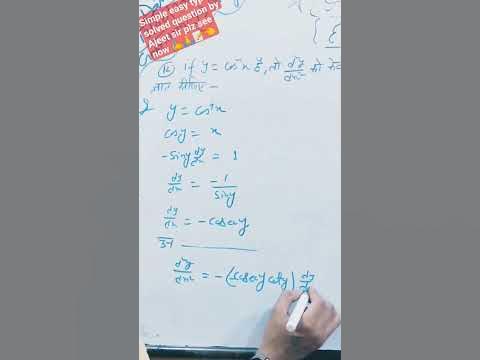 Simple easy typ
solved question by
Ajeet sir plz see
now
If y = cos⁻¹x है, तो d²y/dx² को
ज्ञात कीजिए -
y = cos⁻¹x
cosy = x
-siny dy/dx = 1
dy/dx = -1/siny
dy/dx = -cosecy
d²y/dx² = -(-cosecy coty) dy/d